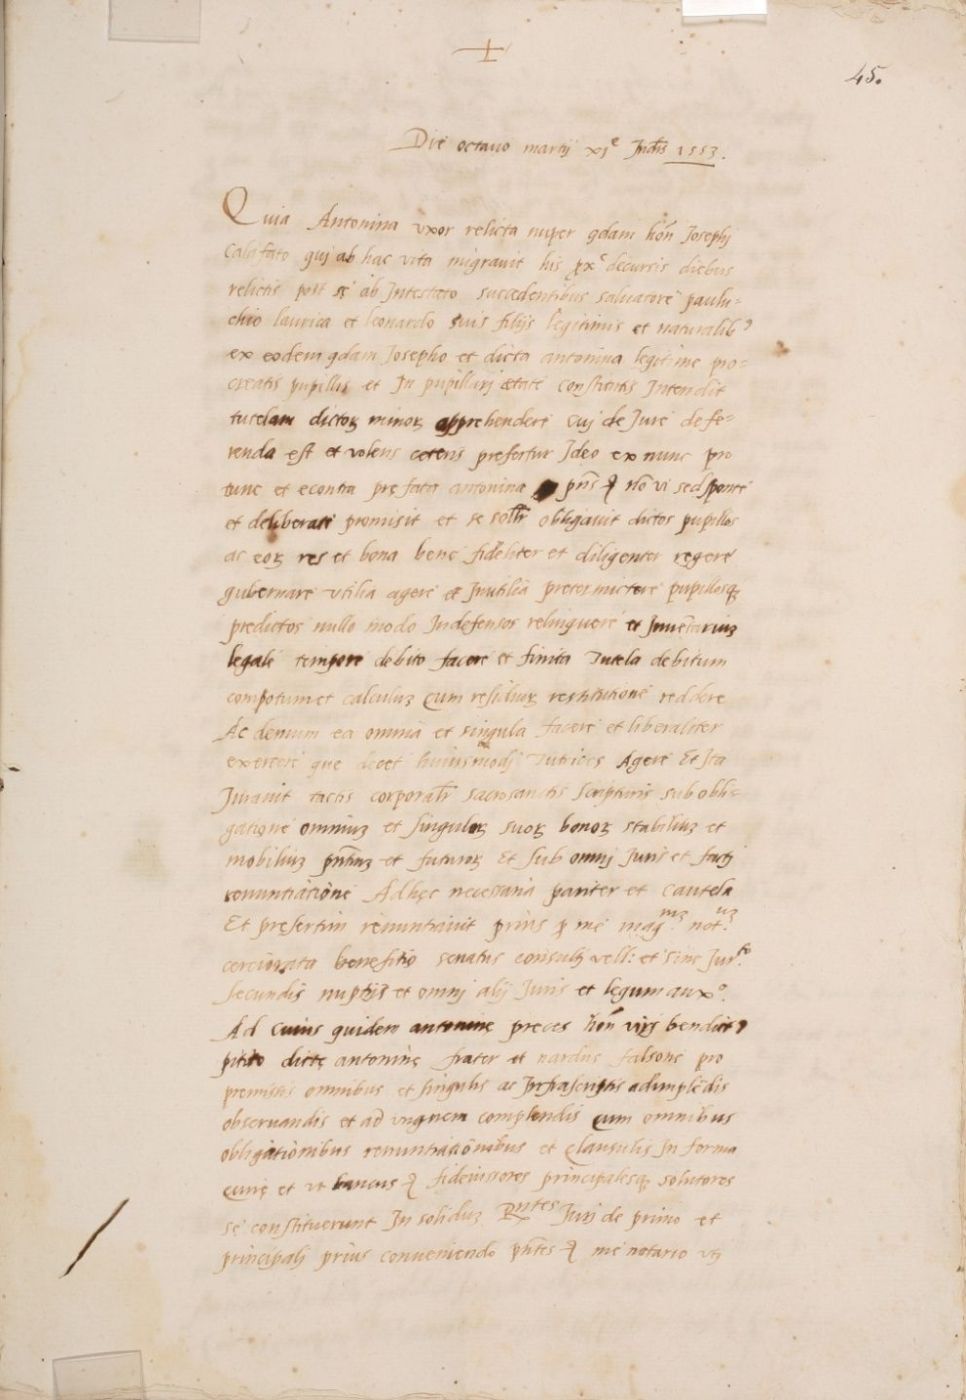 +
45.
Die octavo martij xj^e Indis 1553.
Quia Antonina vxor relicta nuper qdam hon Josephi
Calafato qui ab hac vita migravit his decursis diebus
relictis post se ab Intestato succedentibus salvatore paulu=
chio laurica et leonardo suis filijs legitimis et naturalib9
ex eodem qdam Josepho et dicta antonina legitime pro=
creatis pupillis et In pupillari ætate constitutis Intendit
tutelam dictoꝝ minoꝝ apprehendere cui de Jure defe=
renda est et volens ceteris prefertur Ideo ex nunc pro
tunc et econtra pręfata antonina pns no vi sed sponte
et deliberate promisit et se obligavit dictos pupillos
ac eoꝝ res et bona bene fideliter et diligenter regere
gubernare vtilia agere et Inutilia pretermictere pupillosq3
predictos nullo modo Indefensos relinquere et Inventariuz
legali tempore debito facere et finita tutela debitum
compotum et calculuz cum residuoꝝ restitutione reddere
Ac demum ea omnia et singula facere et liberaliter
exercere que decet huiusmodj tutrices Agere Et Ita
Juravit tactis corporalr sacrosanctis scripturis sub obli=
gatione omniuz et singuloꝝ suoꝝ bonoꝝ stabiliuz et
mobiliuz pntiuz et futuroꝝ Et sub omnj Juris et factj
renuntiatione Ad hęc necessaria pariter et cautela
Et pręsertim renuntiavit prius ꝑ me mag^m not^uz
cerciorata benefitio senatus consulti vell: et sine Jur^to
secundis nuptijs et omni alij Juris et legum aux^o.
Ad cuius quidem antoninę preces hon virj
dictę antoninę frater et nardus falsone pro
premissis omnibus et singulis ac Infrascriptis adimplēdis
observandis et ad vnguem complendis cum omnibus
obligationibus renuntiationibus et clausulis In forma
curię et vt bancus fideiussores principalesq3 solutores
se constituerunt In soliduz Rntes Juri de primo et
principali prius conveniendo pntes me notario vti